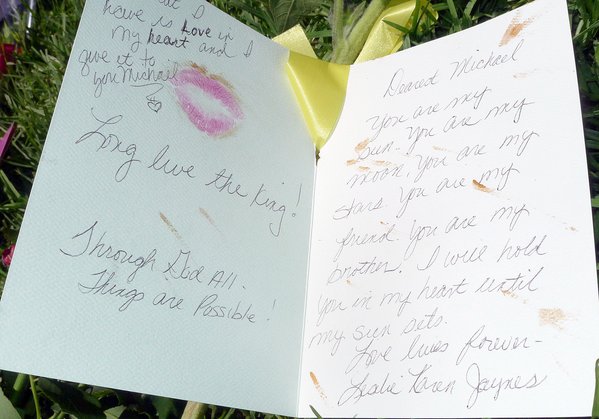 I
have is Love in
my heart and I
give it to
you Michael
Long live the King!
Through God All
Things are Possible!
Dearest Michael
You are my
sun. You are my
moon. You are my
stars. You are my
friend. You are my
brother. I will hold
you in my heart until
my sun sets.
Love lives forever-
Leslie Karen Jaynes